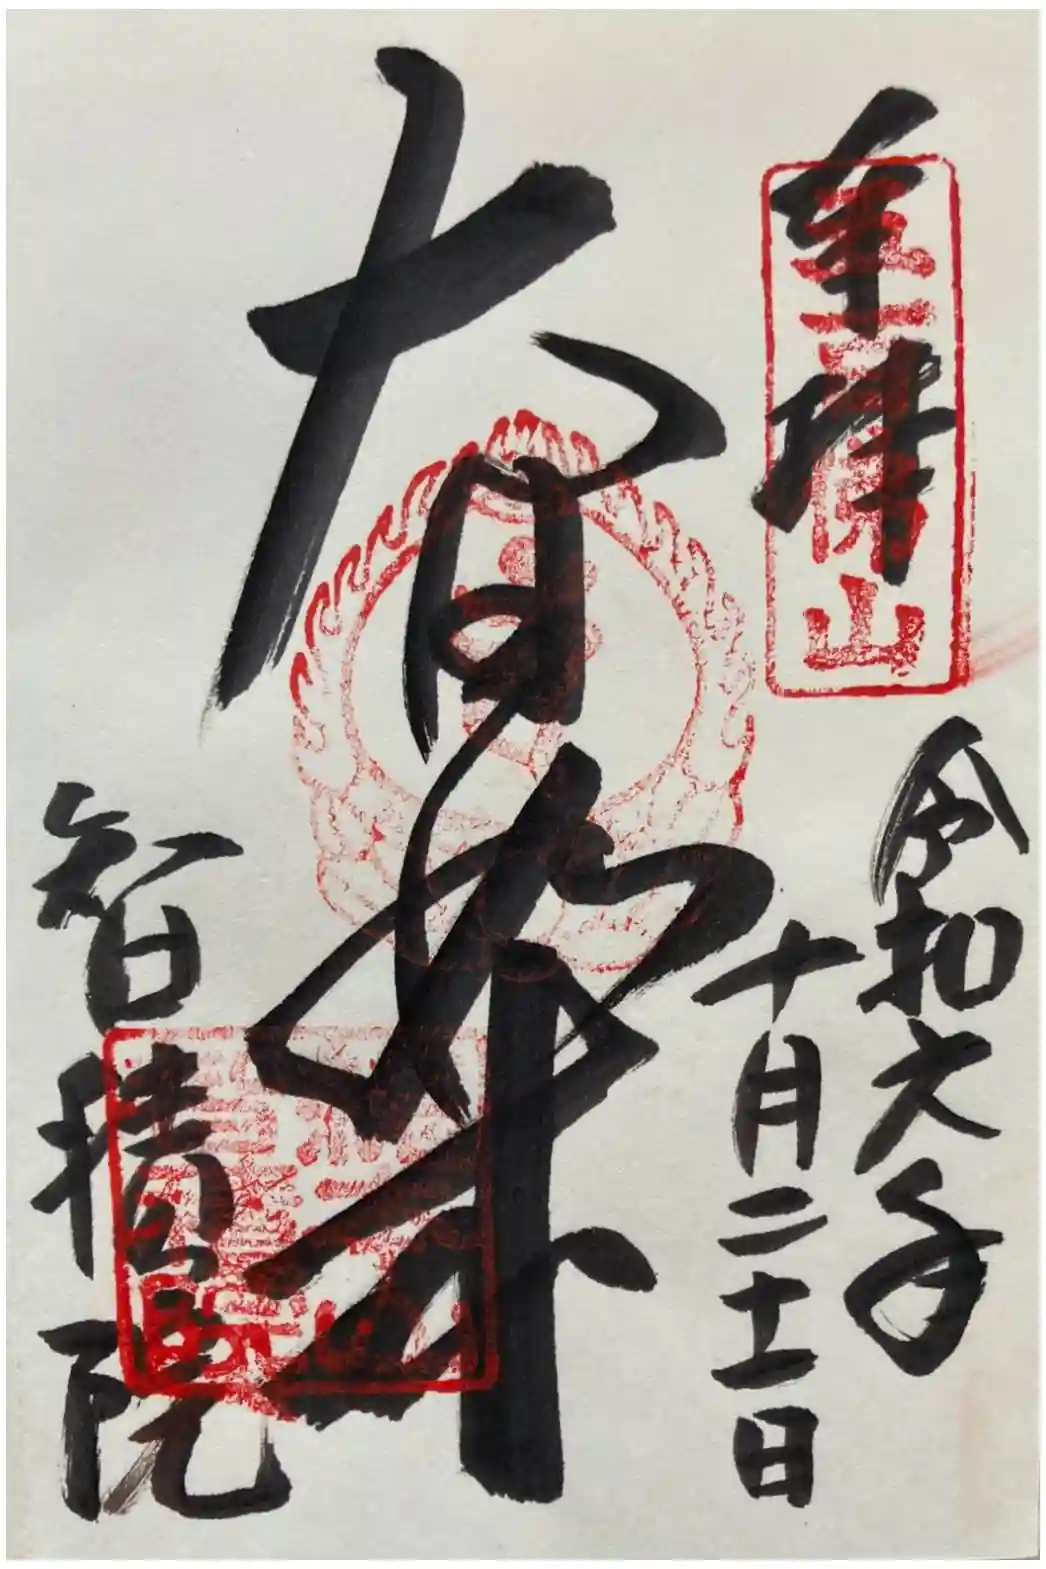 奉拝
五百佛山
令和六年
十月二十一日
大日如来
智積院